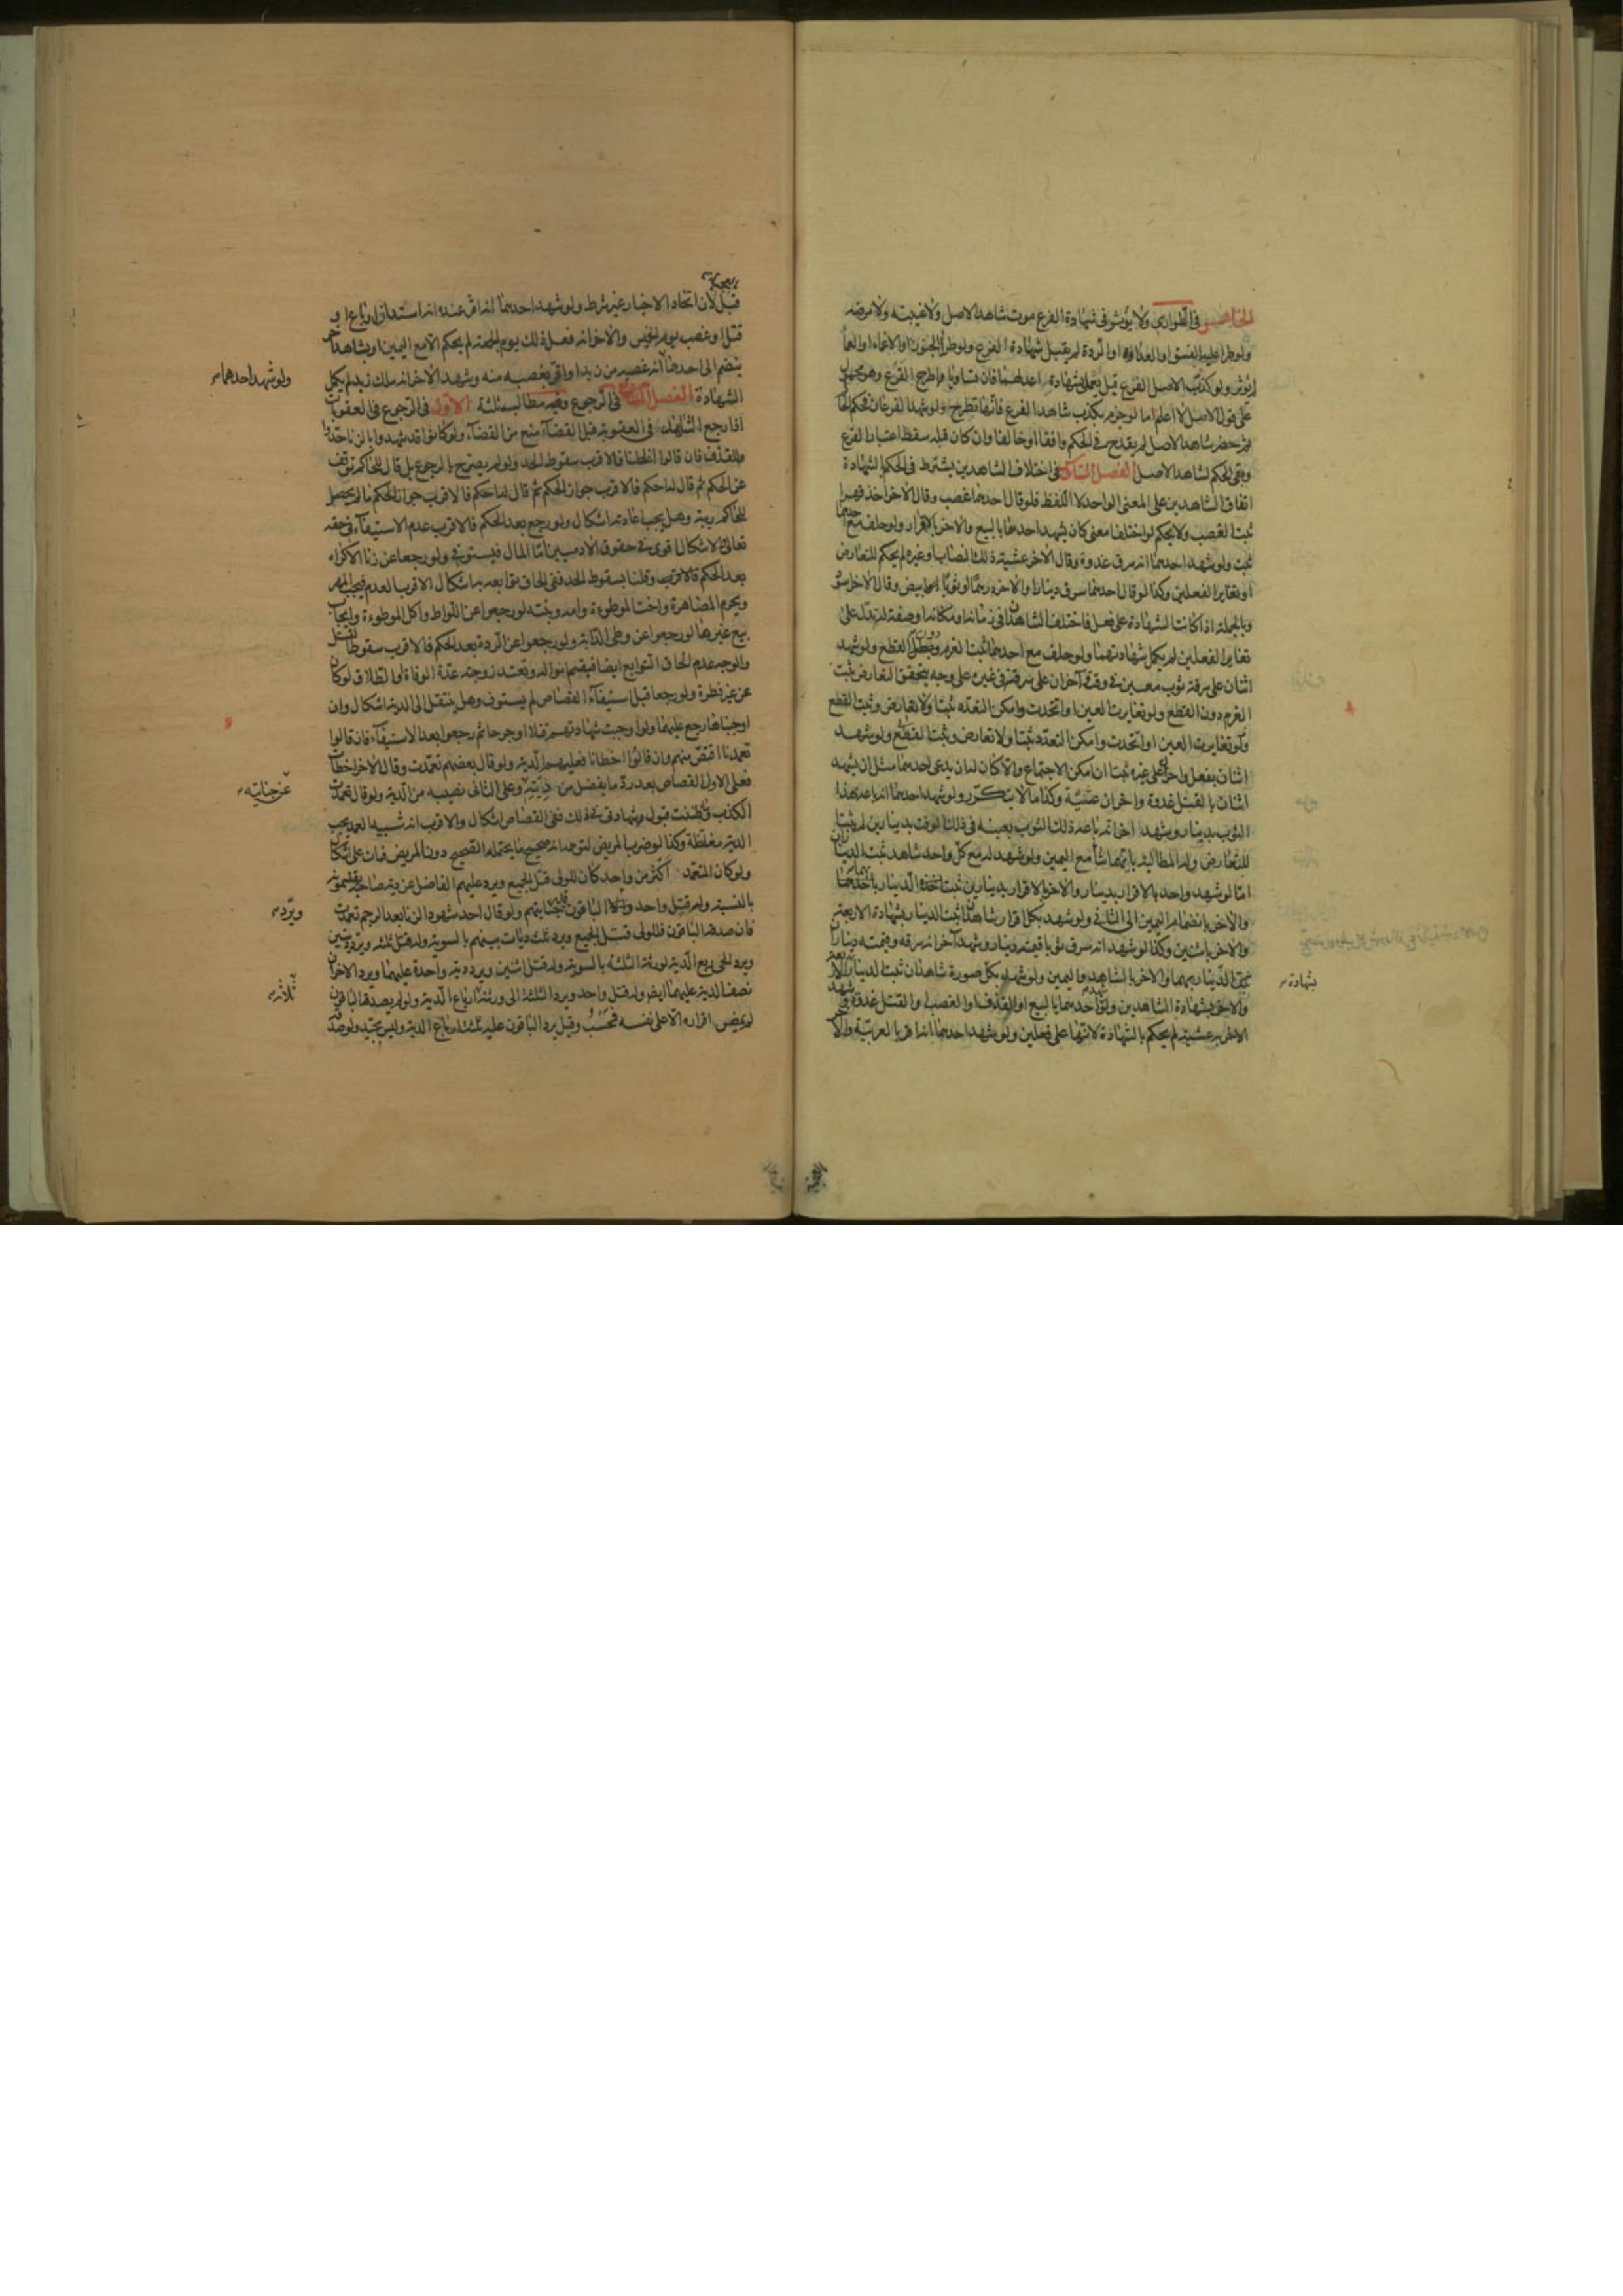 الخامس في الطوارئ ولا يؤثر في شهادة الفرع موت شاهد الاصل ولا غيبته ولا مرضه
ولو طرا عليه الفسق او العداوة او الردة لم يقبل شهادة الفرع ولو طرا الجنون او الاغماء او العمى
لم يؤثر ولو كذب الاصل الفرع قيل يعمل بشهادة اعدلهما فان تساويا اطرح الفرع وهو محمول
على قول الاصل لا اعلم اما لو جزم بكذب شاهد الفرع فانها تطرح ولو شهد الفرعان فحكم الحاكم
ثم حضر شاهد الاصل لم يقدح في الحكم وافقا او خالفا وان كان قبله سقط اعتبار الفرع
وبقي الحكم لشاهد الاصل الفصل السادس في اختلاف الشاهدين يشترط في الحكم بالشهادة
اتفاق الشاهدين على المعنى الواحد لا اللفظ فلو قال احدهما غصب وقال الاخر اخذ قهرا
ثبت الغصب ولا يحكم لو اختلفا معنى كان يشهد احدهما بالبيع والاخر بالاقرار ولو حلف مع احدهما
ثبت ولو شهد احدهما انه سرق غدوة وقال الاخر عشية ذلك النصاب او غيره لم يحكم للتعارض
او تغاير الفعلين وكذا لو قال احدهما سرق دينارا والاخر درهما او ثوبا ابيض وقال الاخر اسود
وبالجملة اذا كانت الشهادة على فعل فاختلف الشاهدان في زمانه او مكانه او صفة له تدل على
تغاير الفعلين لم يكمل شهادتهما ولو حلف مع احدهما ثبت الغرم دون القطع ولو شهد
اثنان على سرقة ثوب معين في وقت وآخران على سرقته في غيره على وجه يتحقق التعارض ثبت
الغرم دون القطع ولو تغايرت العين او اتحدت وامكن التعدد ثبتا ولا تعارض وثبت القطع
ولو تغايرت العين او اتحدت وامكن التعدد ثبتا ولا تعارض وثبت القطع ولو شهد
اثنان بفعل واخران على غيره ثبتا ان امكن الاجتماع والا كان لمن يدعي احدهما مثل ان يشهد
اثنان بالقتل غدوة واخران عشية وكذا ما لا يتكرر ولو شهد احدهما انه باعه هذا
الثوب بدينار وشهد اخر انه باعه ذلك الثوب بعينه في ذلك الوقت بدينارين لم يثبتا
للتعارض وله المطالبة بايهما شاء مع اليمين ولو شهد له مع كل واحد شاهد ثبت الديناران
اما لو شهد واحد بالاقرار بدينار والاخر بالاقرار بدينارين ثبت الدينار بهما
والاخر بانضمام اليمين الى الثاني ولو شهد بكل اقرار شاهدان ثبت الدينار بشهادة الاربعة
والاخر باثنين وكذا لو شهد انه سرق ثوبا قيمته دينار وشهد آخر انه سرقه وقيمته ديناران
ثبت الدينار بهما والاخر بالشاهد واليمين ولو شهد بكل صورة شاهدان ثبت الدينار بشهادة الاربعة
والاخر بشهادة الشاهدين ولو شهد احدهما بالبيع او القذف او الغصب او القتل غدوة وشهد
الاخر به عشية لم يحكم بالشهادة لانها على فعلين ولو شهد احدهما انه اقر بالعربية والاخر
بشهادة
بالعجمية
قبل لان اتحاد الاخبار غير شرط ولو شهد احدهما انه اقر عنده انه استدان او باع او
قتل او غصب يوم الخميس والاخر انه فعل ذلك يوم الجمعة لم يحكم الا مع اليمين او شاهد آخر
ينضم الى احدهما انه غصبه من زيد او اقر بغصبه منه وشهد الاخر انه ملك زيد لم يكمل
الشهادة الفصل السابع في الرجوع وفيه مطالب ثلثة الاول في الرجوع في العقوبات
اذا رجع الشاهد في العقوبة قبل القضاء منع من القضاء ولو كانوا قد شهدوا بالزنا حدوا
للقذف فان قالوا غلطنا فالاقرب سقوط الحد ولو لم يصرح بالرجوع بل قال للحاكم توقف
عن الحكم ثم قال له احكم فالاقرب جواز الحكم ما لم يحصل
للحاكم ريبة وهل يجب اعادته اشكال ولو رجع بعد الحكم فالاقرب عدم الاستيفاء في حقه
تعالى والاشكال اقوى في حقوق الادميين اما المال فيستوفى ولو رجعا عن زنا الاكراه
بعد الحكم فالاقرب وقلنا بسقوط الحد ففي الحاق توابعه بها اشكال الاقرب العدم فيجب المهر
ويحرم المصاهرة واخت الموطوءة وامه وبنته لو رجعوا عن اللواط واكل الموطوءة وايجاب
بيع غيرها لو رجعوا عن وطي الدابة ولو رجعوا عن الردة بعد الحكم فالاقرب سقوط القتل
والوجه عدم الحاق التوابع ايضا فيقسم امواله وتعتد زوجته عدة الوفاة او الطلاق لو كان
عن غير فطرة ولو رجعا قبل استيفاء القصاص لم يستوف وهل ينتقل الى الدية اشكال وان
اوجبناها رجع عليهما ولو اوجبت شهادتهم قتلا او جرحا ثم رجعوا بعد الاستيفاء فان قالوا
تعمدنا اقتص منهم وان قالوا اخطانا فعليهم الدية ولو قال بعضهم تعمدت وقال الاخر اخطات
فعلى الاول القصاص بعد رد ما يفضل من ديته وعلى الثاني نصيبه من الدية ولو قال تعمدت
الكذب وما ظننت قبول شهادتي في ذلك ففي القصاص اشكال والاقرب انه شبيه العمد يجب
الدية مغلظة وكذا لو ضرب المريض لتوهمه انه صحيح ما يحتمله الصحيح دون المريض فمات على اشكال
ولو كان المتعمد اكثر من واحد كان للولي قتل الجميع ويرد عليهم الفاضل عن دية صاحبه
بالنسبة وله قتل واحد ويرد الباقون قدر جنايتهم ولو قال احد شهود الزنا بعد الرجم تعمدت
فان صدقه الباقون فللولي قتل الجميع ويرد ثلث ديات بينهم بالسوية وله قتل ثلثة ويرد ديتين
ويرد الحي ربع الدية لورثة الثلثة بالسوية وله قتل اثنين ويرد دية واحدة عليهما ويرد الاخران
نصف الدية عليهما ايضا وله قتل واحد ويرد الثلثة الى ورثته ارباع الدية ولو لم يصدقه الباقون
لم يمض اقراره الا على نفسه فحسب وقيل يرد الباقون عليه ثلثة ارباع الدية وليس بجيد ولو صدقه
ولو شهد احدهما
عن جنايته
ويرد
ثلاثة